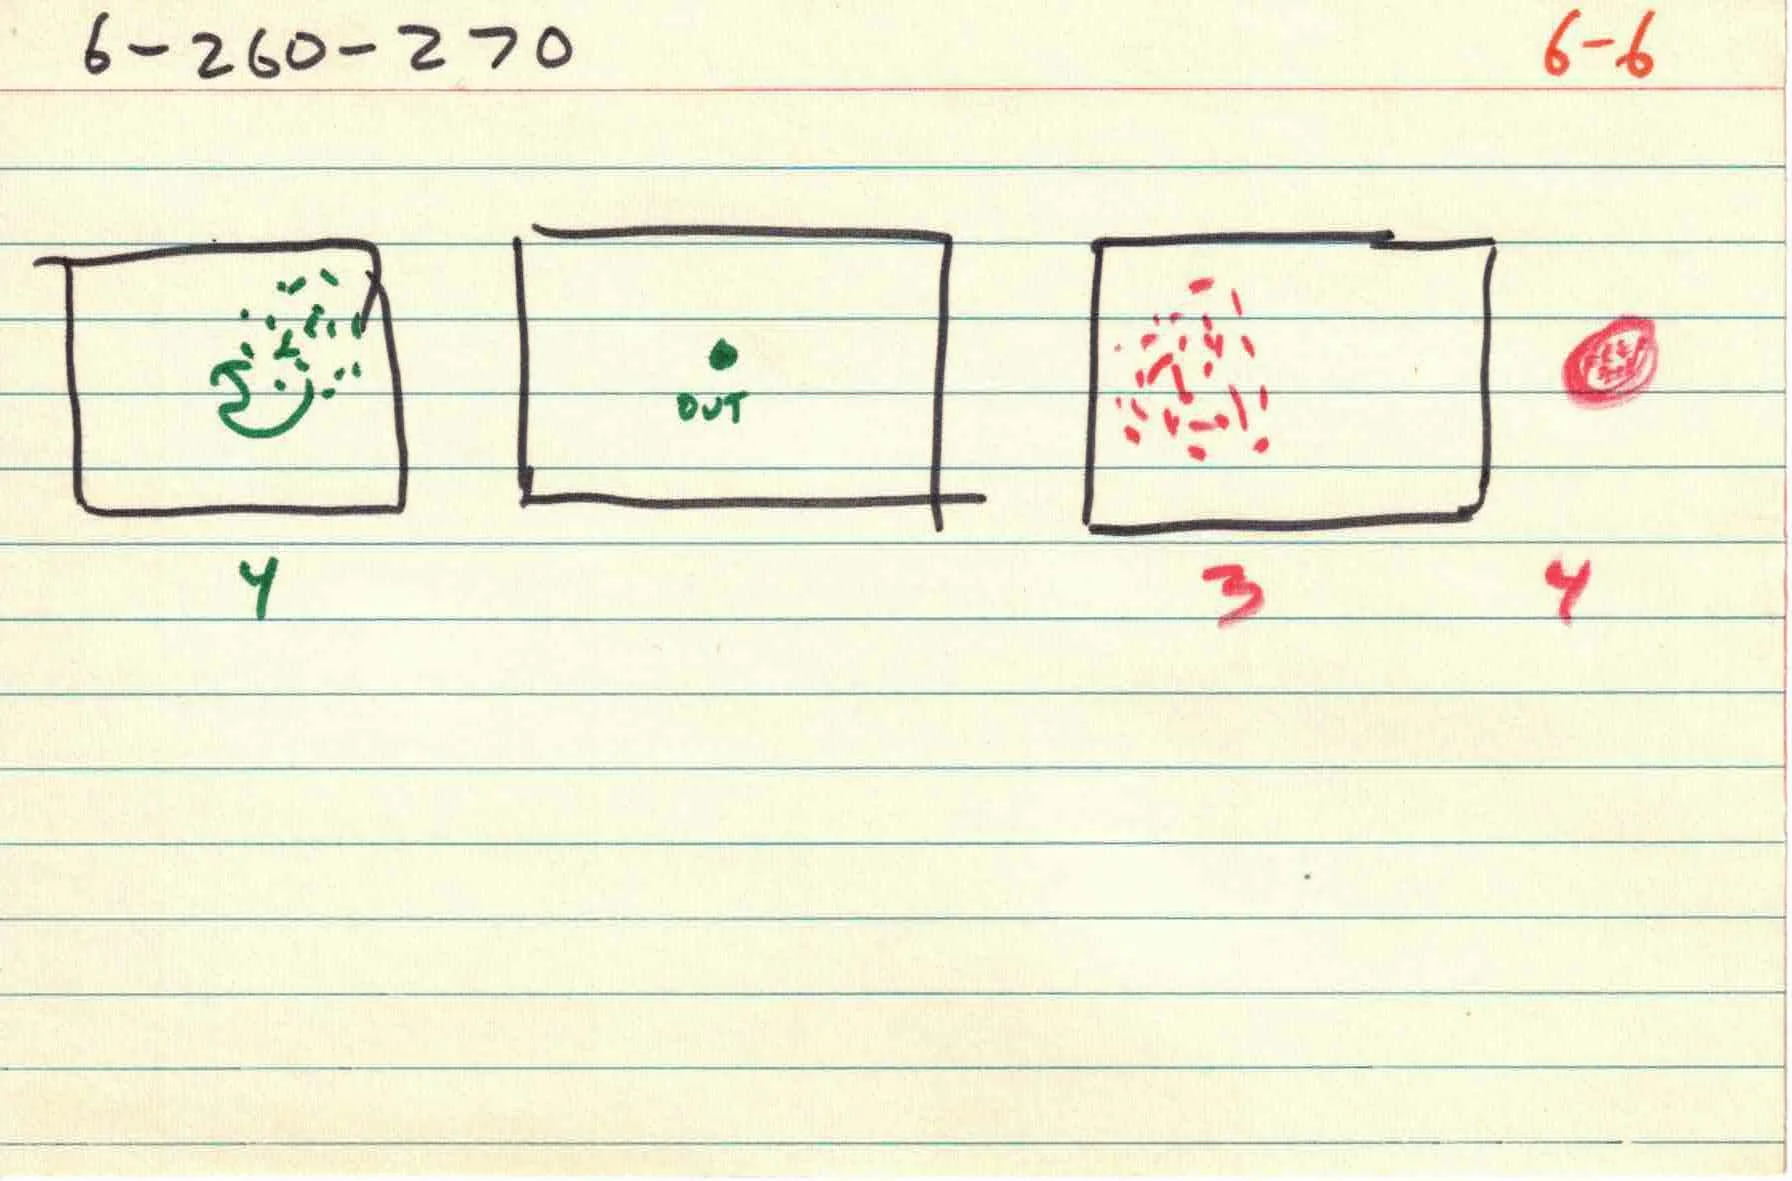 6-260-270 6-6
OUT
4 3 4